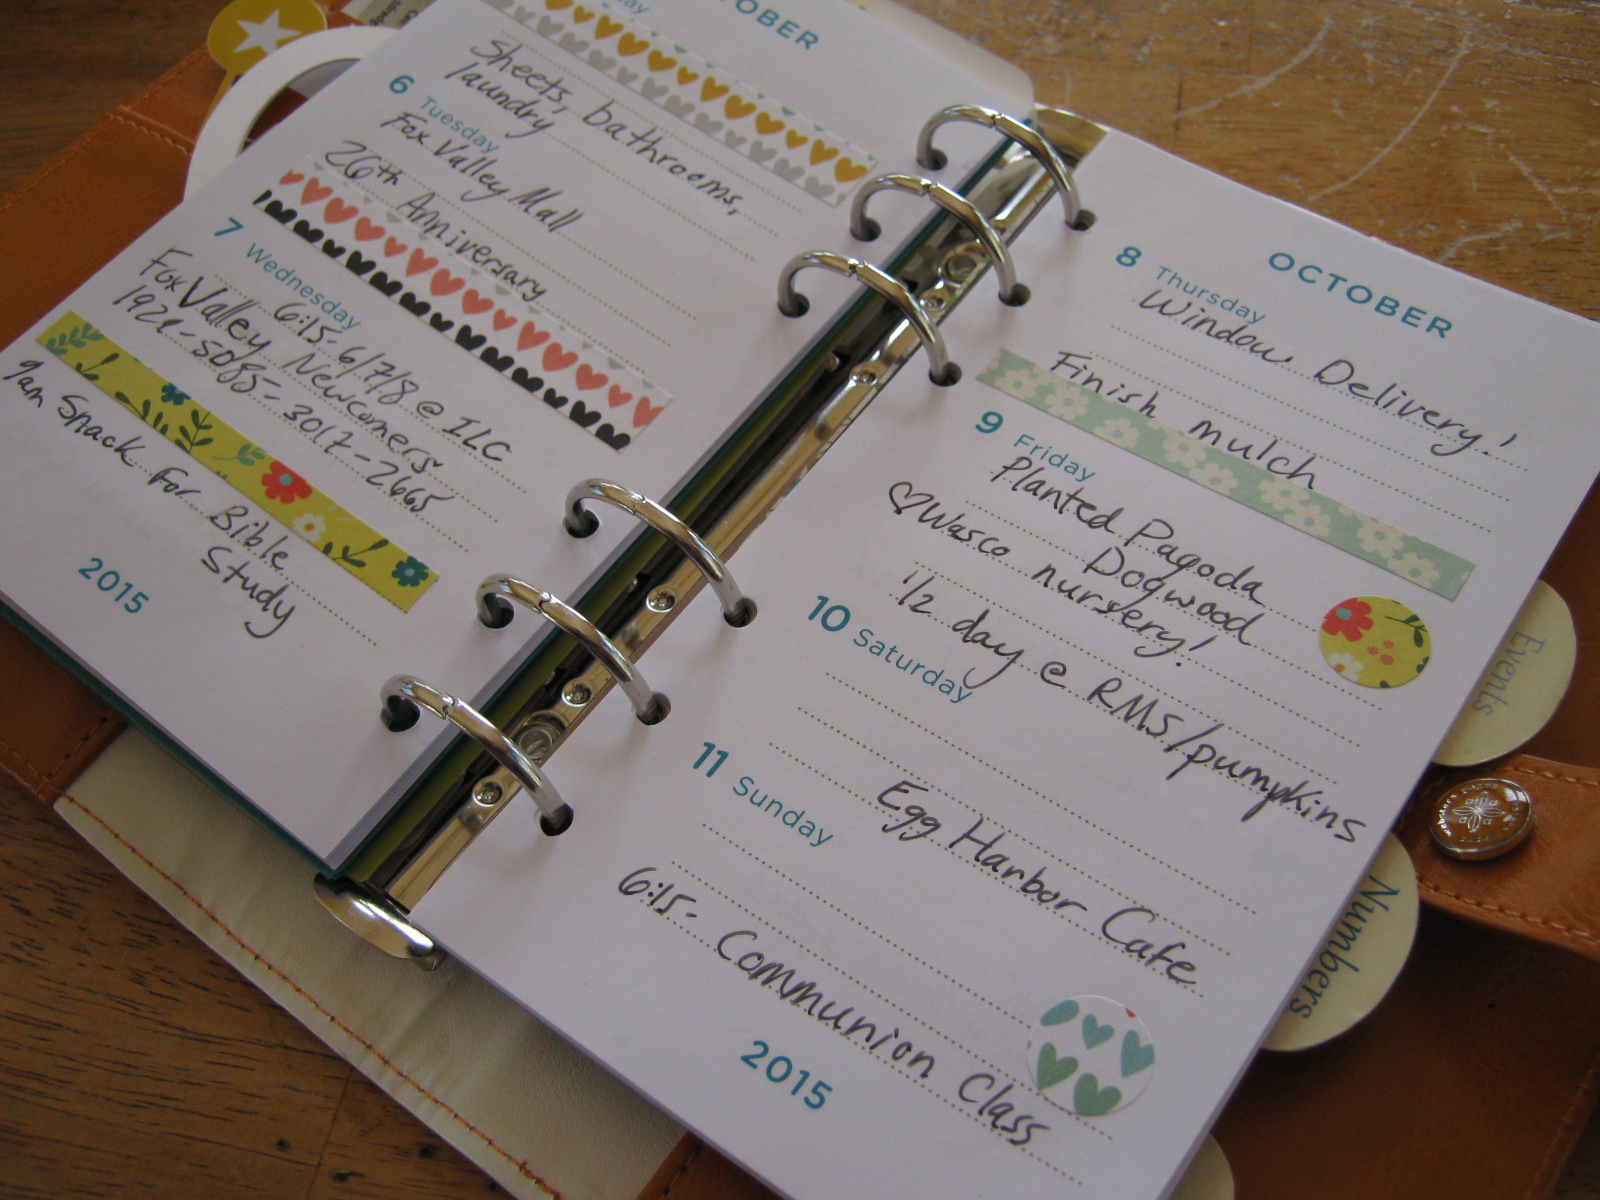 OCTOBER
Sheets, bathrooms,
laundry
6 Tuesday
Fox Valley Mall
26th Anniversary
7 Wednesday
6:15- 6/7/8 @ ILC
Fox Valley Newcomers
192L-5085-3017-2665
9am Snack for Bible
Study
2015
OCTOBER
8 Thursday
Window Delivery!
Finish mulch
9 Friday
Planted Pagoda
Dogwood
♡Wasco nursery!
1/2 day @ RMS/pumpkins
10 Saturday
Egg Harbor Cafe
11 Sunday
6:15- Communion Class
2015
Events
Numbers